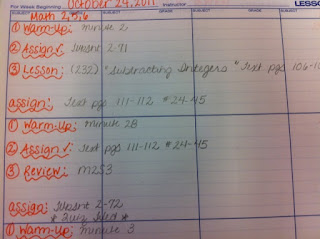 For Week Beginning October 24, 2011 Instructor LESSO
SUBJECT SUBJECT SUBJECT GRADE SUBJECT GRADE SUBJECT
Math 2,5,6
① Warm-Up: minute 2
② Assign ✓: 2-71
③ Lesson: (232) "Subtracting Integers" Text pgs 106-10
assign: Text pgs. 111-112 #24-45
① Warm-Up: minute 2B
② Assign ✓: Text pgs 111-112 #24-45
③ Review: M253
assign: 2-72
* Quiz *
① Warm-Up: minute 3